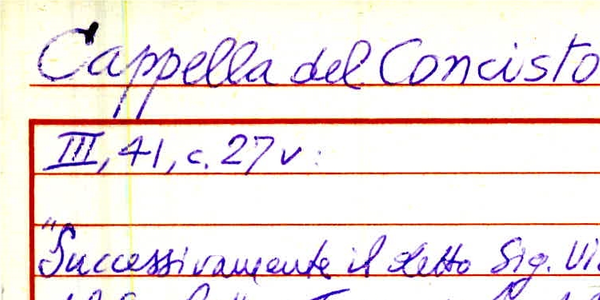 Cappella del Concisto
III, 41, c. 27 v:
"Successivamente il detto Sig. Vi